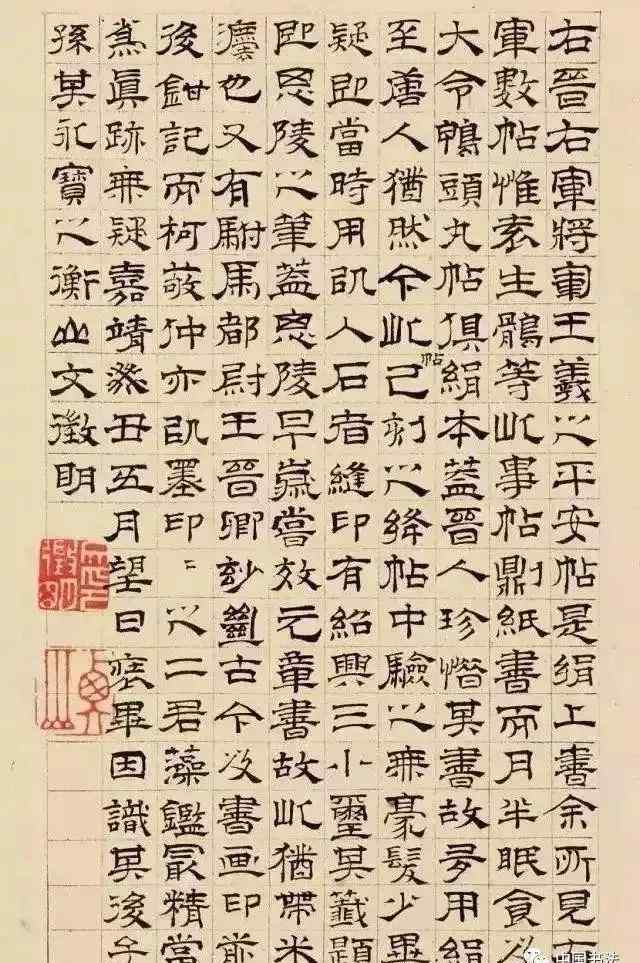 右晉右軍將軍王羲之平安帖是絹上書余所見右
軍數帖惟袁生鶻等此事帖則紙書而月半眠食以
大令鴨頭丸帖俱絹本蓋晉人珍惜其書故多用絹
至唐人猶然今此帖已刻之絳帖中驗之無豪髮少異
疑即當時用以入石者縫印有紹興三小璽其籤題
即思陵之筆蓋思陵早歲嘗效元章書故此猶帶米
也又有駙馬都尉王晉卿古今以書畫印前
後鉗記而柯敬仲亦以墨印〻之二君藻鑑最精當
為真跡無疑嘉靖癸丑五月望日裝畢因識其後子
孫其永寶之衡山文徵明